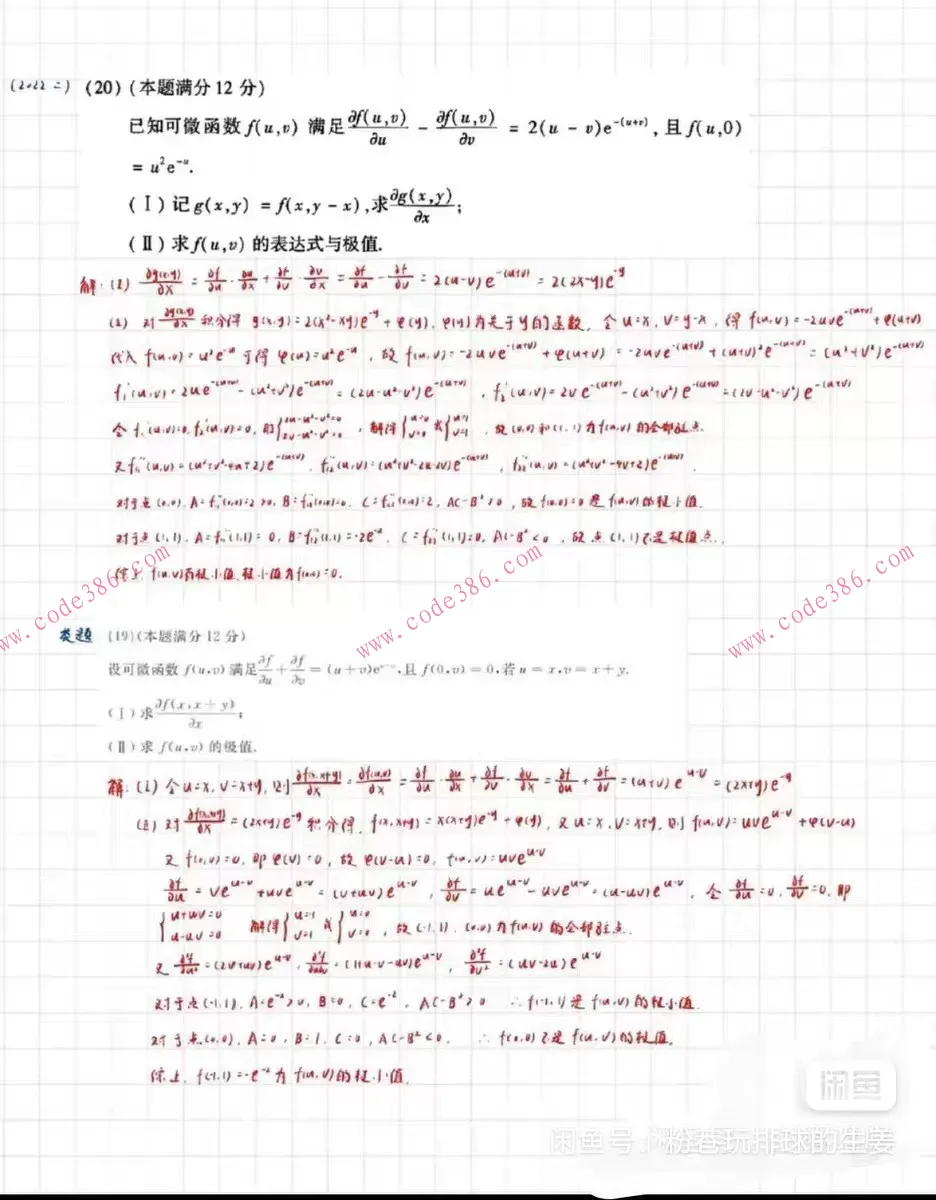 (2022二) (20) (本题满分 12 分)
已知可微函数 f(u,v) 满足 ∂f(u,v)/∂u − ∂f(u,v)/∂v = 2(u − v)e^{-(u+v)}, 且 f(u,0)
= u²e^{-u}.
(Ⅰ) 记 g(x,y) = f(x,y − x), 求 ∂g(x,y)/∂x;
(Ⅱ) 求 f(u,v) 的表达式与极值.
解: (1) ∂g(x,y)/∂x = ∂f/∂u · ∂u/∂x + ∂f/∂v · ∂v/∂x = ∂f/∂u − ∂f/∂v = 2(u-v)e^{-(u+v)} = 2(2x-y)e^{-y}
(2) 对 ∂g(x,y)/∂x 积分得 g(x,y) = 2(x²-xy)e^{-y} + φ(y), φ(y)为关于y的函数, 令 u=x, v=y-x, 得 f(u,v) = -2uve^{-(u+v)} + φ(u+v)
代入 f(u,0) = u²e^{-u} 可得 φ(u) = u²e^{-u}, 故 f(u,v) = -2uve^{-(u+v)} + φ(u+v) = -2uve^{-(u+v)} + (u+v)²e^{-(u+v)} = (u²+v²)e^{-(u+v)}
f₁'(u,v) = 2ue^{-(u+v)} - (u²+v²)e^{-(u+v)} = (2u-u²-v²)e^{-(u+v)}, f₂'(u,v) = 2ve^{-(u+v)} - (u²+v²)e^{-(u+v)} = (2v-u²-v²)e^{-(u+v)}
令 f₁'(u,v)=0, f₂'(u,v)=0, 即 { 2u-u²-v²=0 2v-u²-v²=0, 解得 { u=0 v=0 或 { u=1 v=1, 故 (0,0) 和 (1,1) 为 f(u,v) 的全部驻点.
又 f₁₁''(u,v) = (u²+v²-4u+2)e^{-(u+v)}, f₁₂''(u,v) = (u²+v²-2u-2v)e^{-(u+v)}, f₂₂''(u,v) = (u²+v²-4v+2)e^{-(u+v)}.
对于点 (0,0), A = f₁₁''(0,0) = 2 > 0, B = f₁₂''(0,0) = 0, C = f₂₂''(0,0) = 2, AC-B² > 0, 故 f(0,0)=0 是 f(u,v) 的极小值.
对于点 (1,1), A = f₁₁''(1,1) = 0, B = f₁₂''(1,1) = -2e^{-2}, C = f₂₂''(1,1) = 0, AC-B² < 0, 故点 (1,1) 不是极值点.
综上, f(u,v)有极小值, 极小值为 f(0,0)=0.
www.code386.com
www.code386.com
www.code386.com
类题 (19)(本题满分 12 分)
设可微函数 f(u,v) 满足 ∂f/∂u + ∂f/∂v = (u+v)e^{u-v}, 且 f(0,v) = 0, 若 u = x, v = x + y.
(Ⅰ) 求 ∂f(x,x+y)/∂x;
(Ⅱ) 求 f(u,v) 的极值.
解: (1) 令 u=x, v=x+y, 则 ∂f(x,x+y)/∂x = ∂f(u,v)/∂x = ∂f/∂u · ∂u/∂x + ∂f/∂v · ∂v/∂x = ∂f/∂u + ∂f/∂v = (u+v)e^{u-v} = (2x+y)e^{-y}
(2) 对 ∂f(x,x+y)/∂x = (2x+y)e^{-y} 积分得, f(x,x+y) = x(x+y)e^{-y} + φ(y), 又 u=x, v=x+y, 则 f(u,v) = uve^{u-v} + φ(v-u)
又 f(0,v)=0, 即 φ(v)=0, 故 φ(v-u)=0, f(u,v) = uve^{u-v}
∂f/∂u = ve^{u-v} + uve^{u-v} = (v+uv)e^{u-v}, ∂f/∂v = ue^{u-v} - uve^{u-v} = (u-uv)e^{u-v}, 令 ∂f/∂u=0, ∂f/∂v=0, 即
{ u+uv=0 u-uv=0 解得 { u=-1 v=1 或 { u=0 v=0, 故 (-1,1), (0,0) 为 f(u,v) 的全部驻点.
又 ∂²f/∂u² = (2v+uv)e^{u-v}, ∂²f/∂u∂v = (1+u-v-uv)e^{u-v}, ∂²f/∂v² = (uv-2u)e^{u-v}
对于点 (-1,1), A=e^{-2}>0, B=0, C=e^{-2}, AC-B²>0 ∴ f(-1,1) 是 f(u,v) 的极小值.
对于点 (0,0), A=0, B=1, C=0, AC-B²<0, ∴ f(0,0) 不是 f(u,v) 的极值.
综上, f(-1,1) = -e^{-2} 为 f(u,v) 的极小值.
闲鱼
闲鱼号:粉巷玩排球的生姜